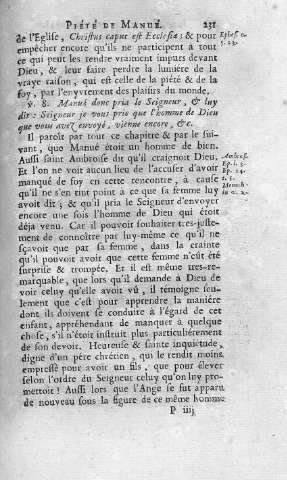 PIÉTÉ DE MANUÉ. 231
de l'Eglise, Christus caput est Ecclesiæ: & pour
empêcher encore qu'ils ne participent à tout
ce qui peut les rendre vraiment impurs devant
Dieu, & leur faire perdre la lumiére de la
vraye raison, qui est celle de la piété & de la
foy, par l'enyvrement des plaisirs du monde.
℣. 8. Manué donc pria le Seigneur, & luy
dit: Seigneur je vous prie que l'homme de Dieu
que vous avez envoyé, vienne encore, &c.
Il paroît par tout ce chapitre & par le sui-
vant, que Manué étoit un homme de bien.
Aussi saint Ambroise dit qu'il craignoit Dieu.
Et l'on ne voit aucun lieu de l'accuser d'avoir
manqué de foy en cette rencontre, à cause
qu'il ne s'en tint point à ce que sa femme luy
avoit dit; & qu'il pria le Seigneur d'envoyer
encore une fois l'homme de Dieu qui étoit
déja venu. Car il pouvoit souhaiter tres-juste-
ment de connoître par luy-même ce qu'il ne
sçavoit que par sa femme, dans la crainte
qu'il pouvoit avoir que cette femme n'eût été
surprise & trompée. Et il est même tres-re-
marquable, que lors qu'il demande à Dieu de
voir celuy qu'elle avoit vû, il témoigne seu-
lement que c'est pour apprendre la maniére
dont ils doivent se conduire à l'égard de cet
enfant, appréhendant de manquer à quelque
chose, s'il n'étoit instruit plus particuliérement
de son devoir. Heureuse & sainte inquiétude,
digne d'un pére chrétien, qui le rendit moins
empressé pour avoir un fils, que pour élever
selon l'ordre du Seigneur celuy qu'on luy pro-
mettoit! Aussi lors que l'Ange se fut apparu
de nouveau sous la figure de ce même homme
P iiij
Ephes. c.
5. 23.
Ambros.
Ep.